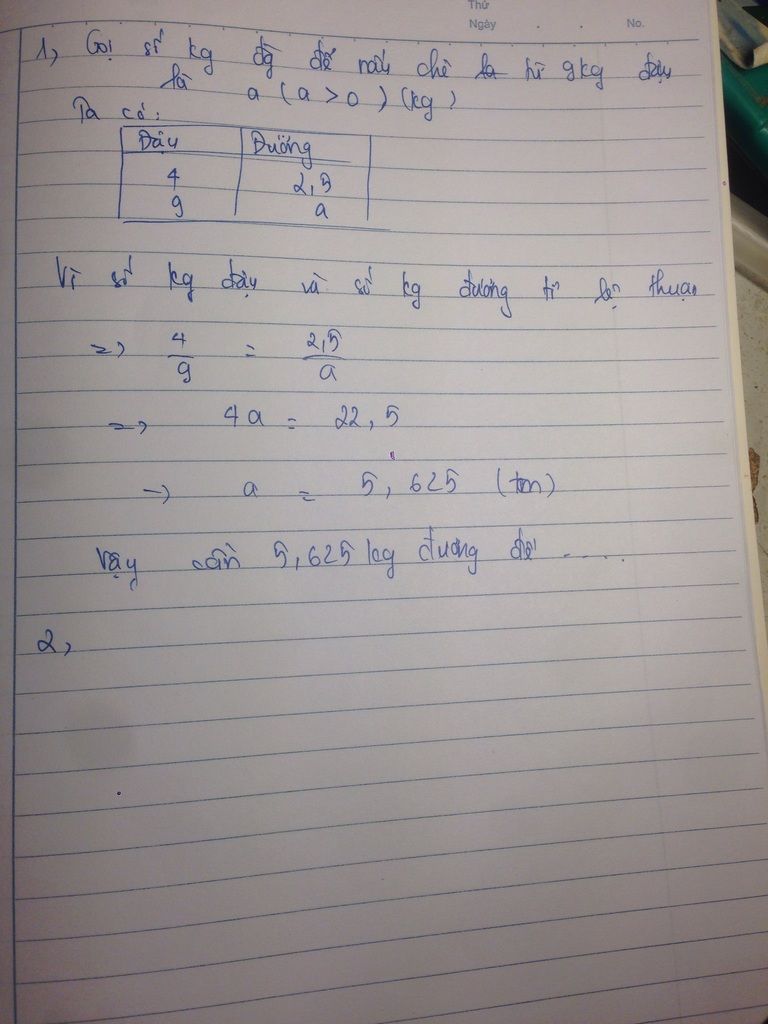 Thứ
Ngày . . No.
1, Gọi số kg đg để nấu chè từ 9kg đậu
là a (a > 0) (kg)
Ta có:
Đậu Đường
4 2,5
9 a
Vì số kg đậu và số kg đường tỉ lệ thuận
=> 4/9 = 2,5/a
=> 4a = 22,5
-> a = 5,625 (tm)
Vậy cần 5,625 kg đương để .....
2,